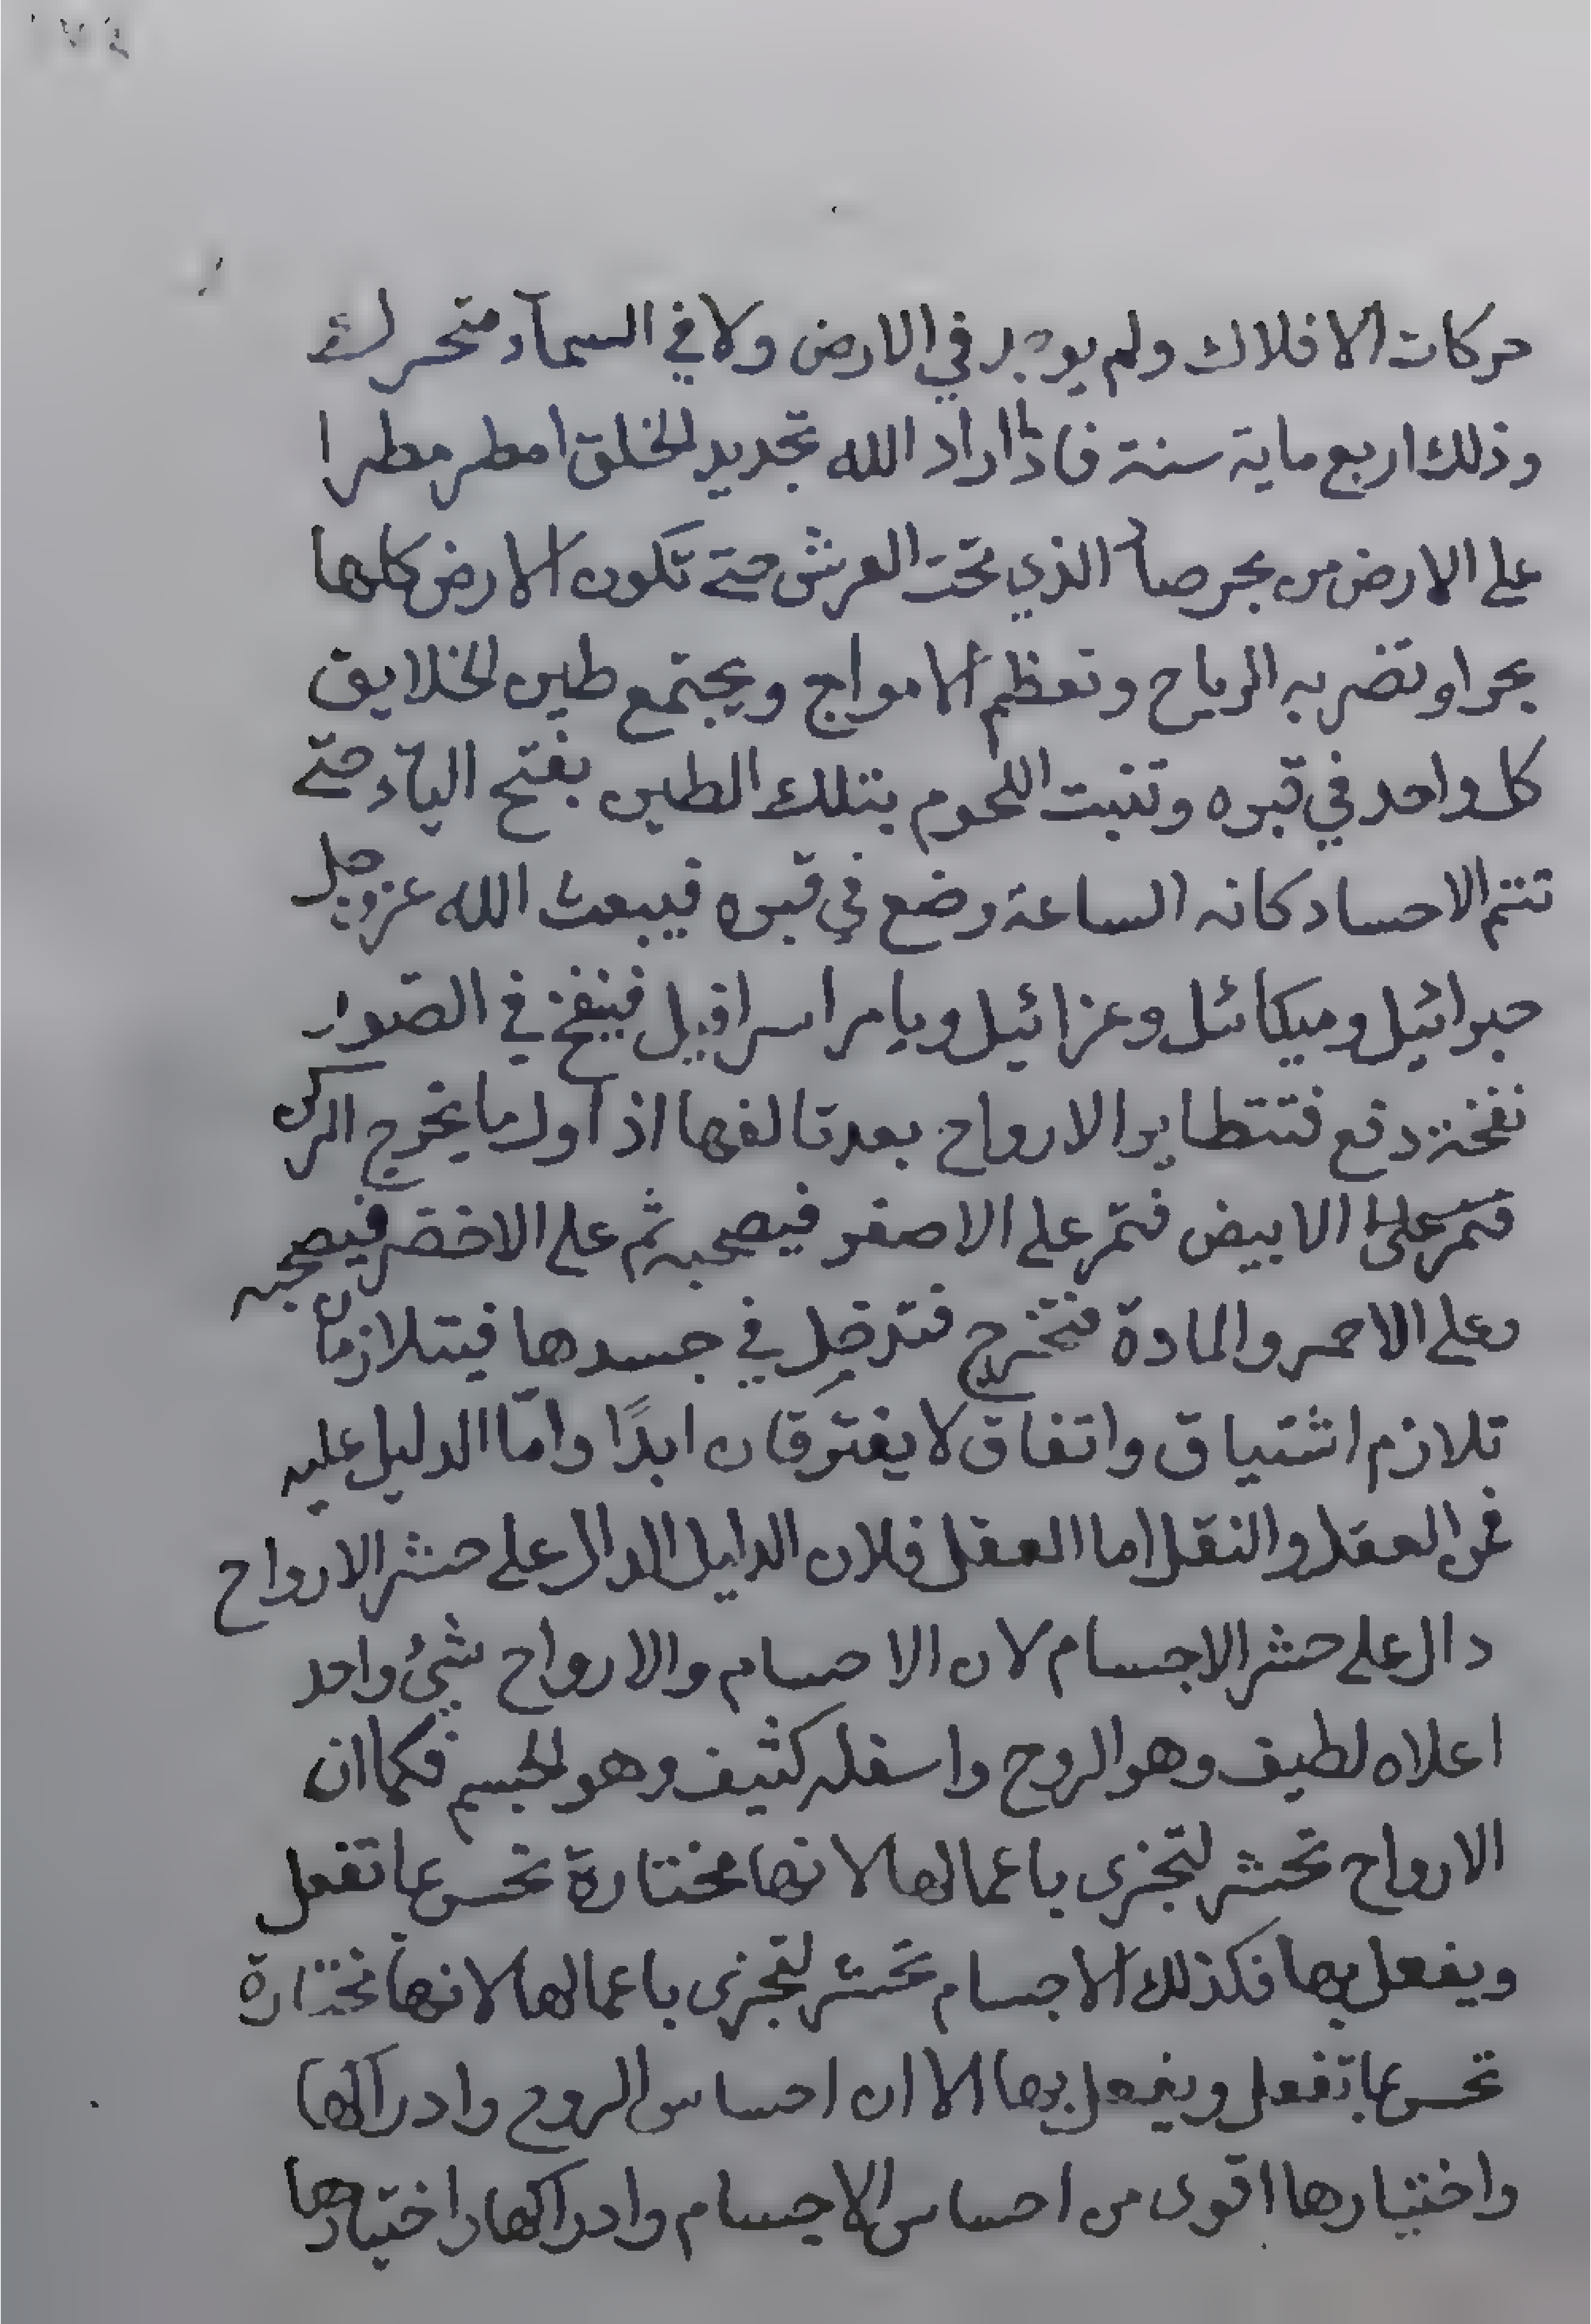 حركات الافلاك ولم يوجد في الارض ولا في السمآء متحرك
وذلك اربع ماية سنة فاذا اراد الله تجديد الخلق امطر مطرا
على الارض من بحر صاد الذي تحت العرش حتى تكون الارض كلها
بحرا وتضربه الرياح وتعظم الامواج ويجتمع طين الخلايق
كل واحد في قبره وتنبت اللحوم بتلك الطين بفتح الياء حتى
تتم الاجساد كانه الساعة وضع في قبره فيبعث الله عز وجل
جبرائيل وميكائل وعزائيل ويامر اسرافيل فينفخ في الصور
نفخة دفع فتتطاير الارواح بعد تالفها اذ اول ما يخرج المركب
فتمر على الابيض فتمر على الاصفر فيصحبه ثم على الاخضر فيصحبه
وعلى الاحمر والمادة فتخرج فتدخل في جسدها فيتلازمان
تلازم اشتياق واتفاق لا يفترقان ابدًا وامّا الدليل عليه
فمن العقل والنقل اما العقل فلان الدليل الدال على حشر الارواح
دال على حشر الاجسام لان الاجسام والارواح شيئ واحد
اعلاه لطيف وهو الروح واسفله كثيف وهو الجسم فكما ان
الارواح تحشر لتجزى باعمالها لانها مختارة تحس بما تفعل
ويفعل بها فكذلك الاجسام تحشر لتجزى باعمالها لانها مختارة
تحس بما تفعل ويفعل بها الا ان احساس الروح وادراكها
واختيارها اقوى من احساس الاجسام وادراكها واختيارها